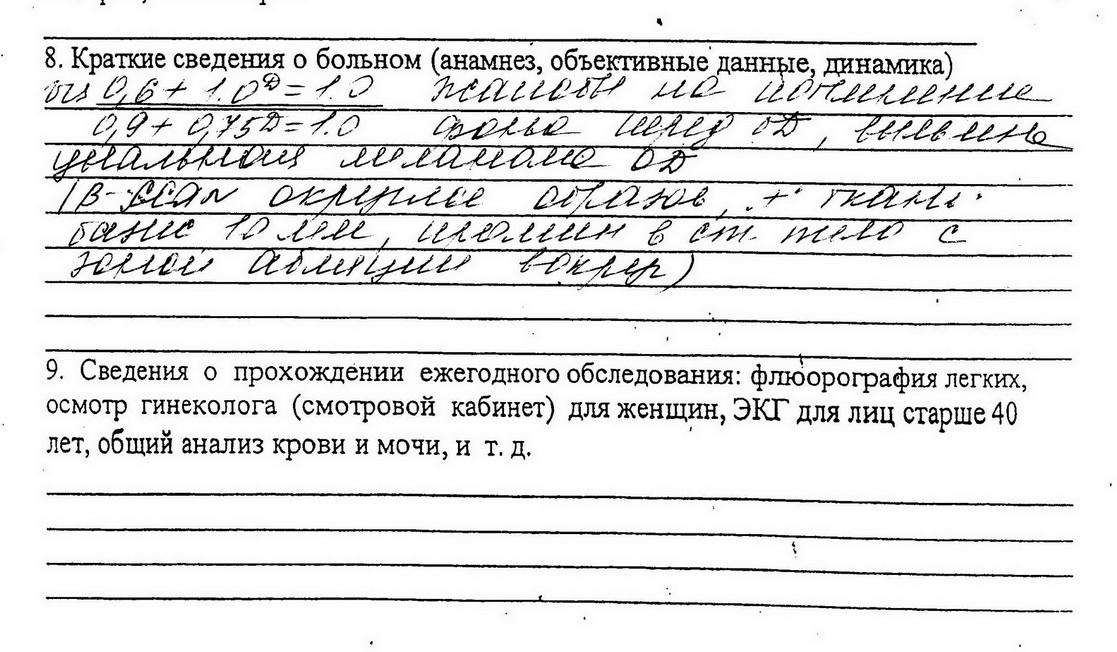 8. Краткие сведения о больном (анамнез, объективные данные, динамика)
vis 0,6 + 1.0D = 1.0 Жалобы на потемнение
0,9 + 0,75D = 1.0 перед OD, выявлена
увеальная меланома OD
(B-scan округлое образов., + ткань.
базис 10 мм, промин в ст. тело с
зоной вокруг)
9. Сведения о прохождении ежегодного обследования: флюорография легких,
осмотр гинеколога (смотровой кабинет) для женщин, ЭКГ для лиц старше 40
лет, общий анализ крови и мочи, и т. д.